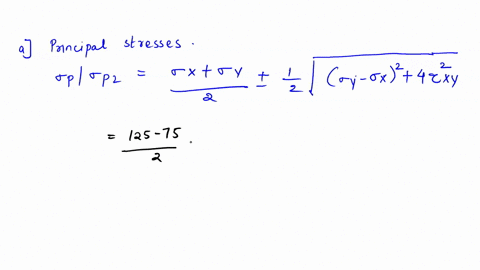 a] Principal stresses .
σp/σp2 = σx+σy/2 ± 1/2 √(σy-σx)²+4τ²xy
= 125-75/2 .